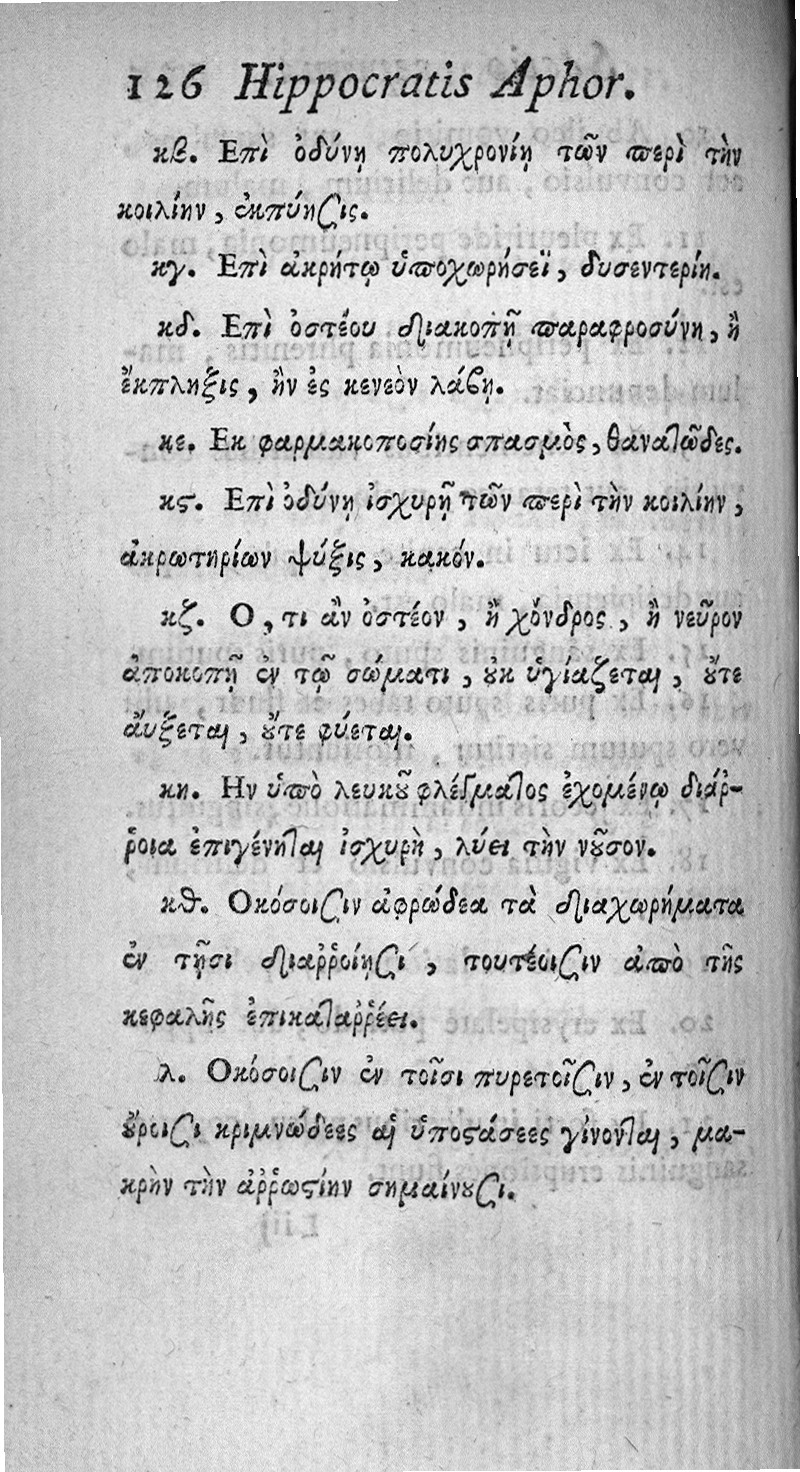 126 Hippocratis Aphor.
κβ. Επὶ ὀδύνῃ πολυχρονίῃ τῶν περὶ τὴν
κοιλίην, ἐκπύησις.
κγ. Επὶ ἀκρήτῳ ὑποχωρήσεϊ, δυσεντερίη.
κδ. Επὶ ὀστέου διακοπῇ παραφροσύνη, ἢ
ἔκπληξις, ἢν ἐς κενεὸν λάβῃ.
κε. Εκ φαρμακοποσίης σπασμὸς, θανατῶδες.
κϛ. Επὶ ὀδύνῃ ἰσχυρῇ τῶν περὶ τὴν κοιλίην,
ἀκρωτηρίων ψύξις, κακόν.
κζ. Ο, τι ἂν ὀστέον, ἢ χόνδρος, ἢ νεῦρον
ἀποκοπῇ ἐν τῷ σώματι, ȣκ ὑγιάζεται, ȣ̓́τε
ἄυξεται, ȣ̓́τε φύεται.
κη. Ην ὑπὸ λευκȣ͂ φλέγματος ἐχομένῳ διάῤ-
ῥοια ἐπιγένηται ἰσχυρὴ, λύει τὴν νȣ͂σον.
κθ. Οκόσοισιν ἀφρώδεα τὰ διαχωρήματα
ἐν τῇσι διαῤῥοίῃσι, τουτέοισιν ἀπὸ τῆς
κεφαλῆς ἐπικαταῤῥέει.
λ. Οκόσοισιν ἐν τοῖσι πυρετοῖσιν, ἐν τοῖσιν
ȣ̓́ροισι κριμνώδεες αἱ ὑποϛάσεες γίνονται, μα-
κρὴν τὴν ἀῤῥωϛίην σημαίνȣσι.